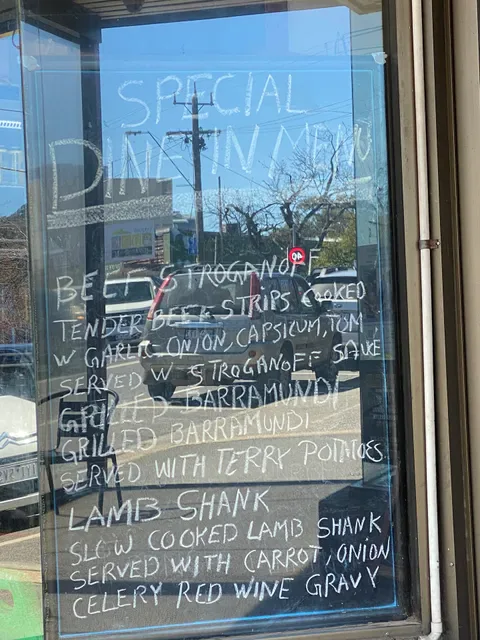 SPECIAL
DINE-IN MENU
BEEF STROGANOFF
TENDER BEEF STRIPS COOKED
W GARLIC ONION, CAPSICUM, TOM
SERVED W STROGANOFF SAUCE
GRILLED BARRAMUNDI
GRILLED BARRAMUNDI
SERVED WITH TERRY POTATOES
LAMB SHANK
SLOW COOKED LAMB SHANK
SERVED WITH CARROT, ONION
CELERY RED WINE GRAVY